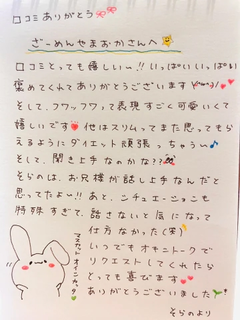 口コミありがとう
ざーめんやまおかさんへ
口コミとっても嬉しいー!! いっぱいいっぱい
褒めてくれてありがとうございます
そして、フワッフワって表現すごく可愛いくて
嬉しいです 他はスリムってまた思ってもら
えるようにダイエット頑張っちゃう♪
そして、聞き上手なのかな??
そらのは、お兄様が話し上手なんだと
思ってたよ!! あと、ニチュエーションも
特殊すぎて、話さないと気になって
仕方なかった(笑)
いつでもオキニトークで
リクエストしてくれたら
とっても喜びます
ありがとうございました
そらのより
マスカットオイシカッタ